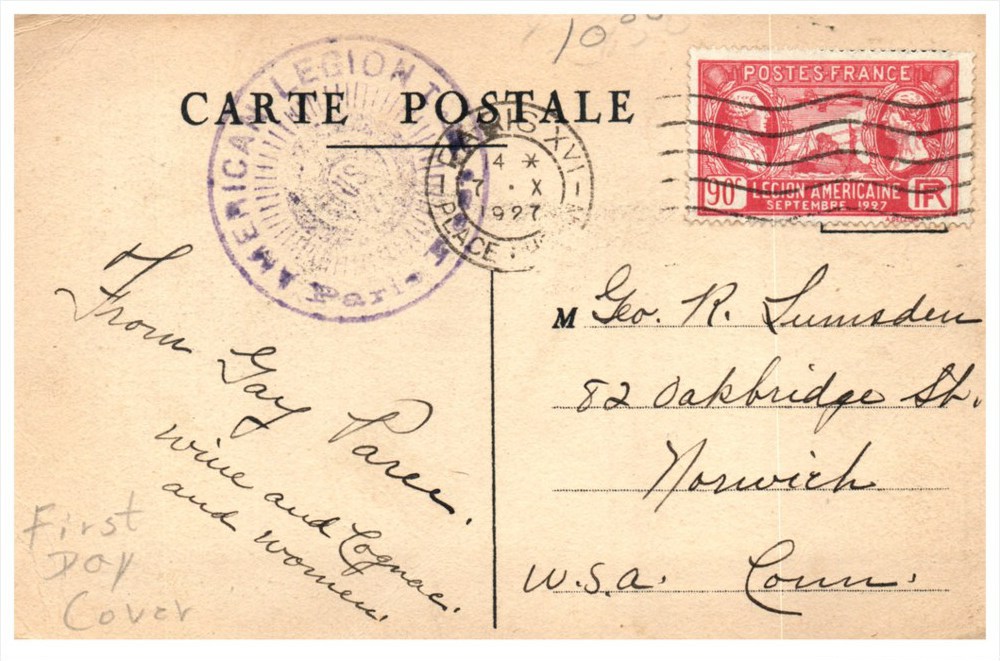 10.00
CARTE POSTALE
AMERICAN LEGION
Paris
PARIS XVI
4 *
7 · X
1927
PLACE
POSTES·FRANCE
90c LEGION AMERICAINE RF
SEPTEMBRE 1927
From Gay Paree,
wine and Cognac.
and women.
First
Day
Cover
M Geo. R. Lumsden
82 Oakbridge St.
Norwich
U.S.A. Conn.